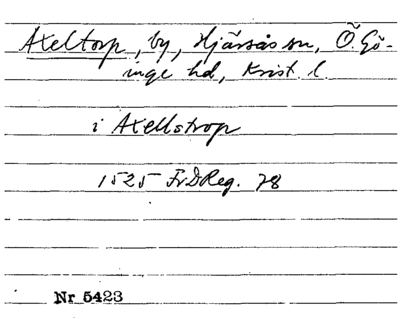 Axeltorp, by, Hjärsås sn, Ö. Gö-
inge hd, Krist. l.
i Axellstrop
1525 FrDReg. 78
Nr 5423